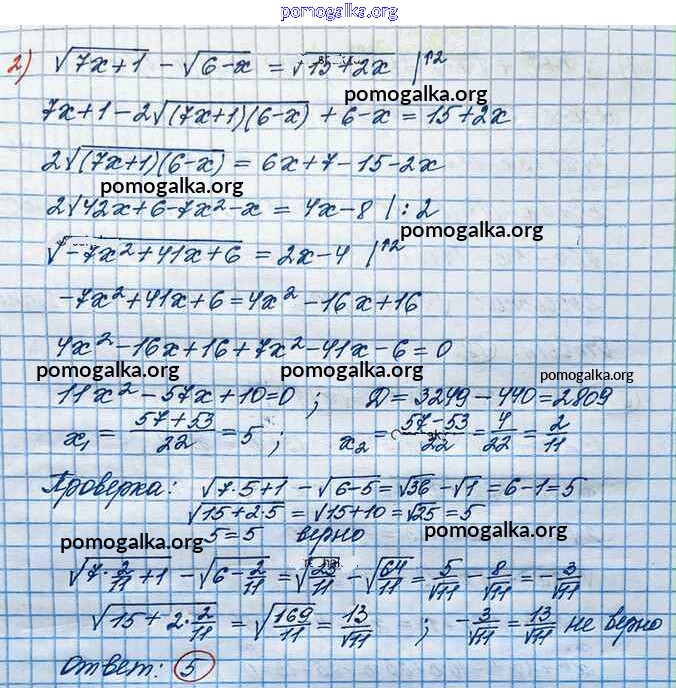 pomogalka.org
2) √(7x+1) − √(6−x) = √(15+2x) |↑2
pomogalka.org
7x+1−2√((7x+1)(6−x)) + 6−x = 15+2x
2√((7x+1)(6−x)) = 6x+7−15−2x
pomogalka.org
2√(42x+6−7x²−x) = 4x−8 | : 2
pomogalka.org
√(−7x²+41x+6) = 2x−4 |↑2
−7x²+41x+6 = 4x²−16x+16
4x²−16x+16+7x²−41x−6=0
pomogalka.org pomogalka.org pomogalka.org
11x²−57x+10=0 ; D = 3249−440=2809
x₁ = (57+53)/22 = 5 ; x₂ = (57−53)/22 = 4/22 = 2/11
Проверка: √(7·5+1) − √(6−5) = √36 − √1 = 6−1=5
√(15+2·5) = √(15+10) = √25 = 5
pomogalka.org
5=5 верно
pomogalka.org
√(7·2/11+1) − √(6−2/11) = √(25/11) − √(64/11) = 5/√11 − 8/√11 = −3/√11
pomogalka.org
√(15+2·2/11) = √(169/11) = 13/√11 ; −3/√11 = 13/√11 не верно
pomogalka.org
Ответ: 5